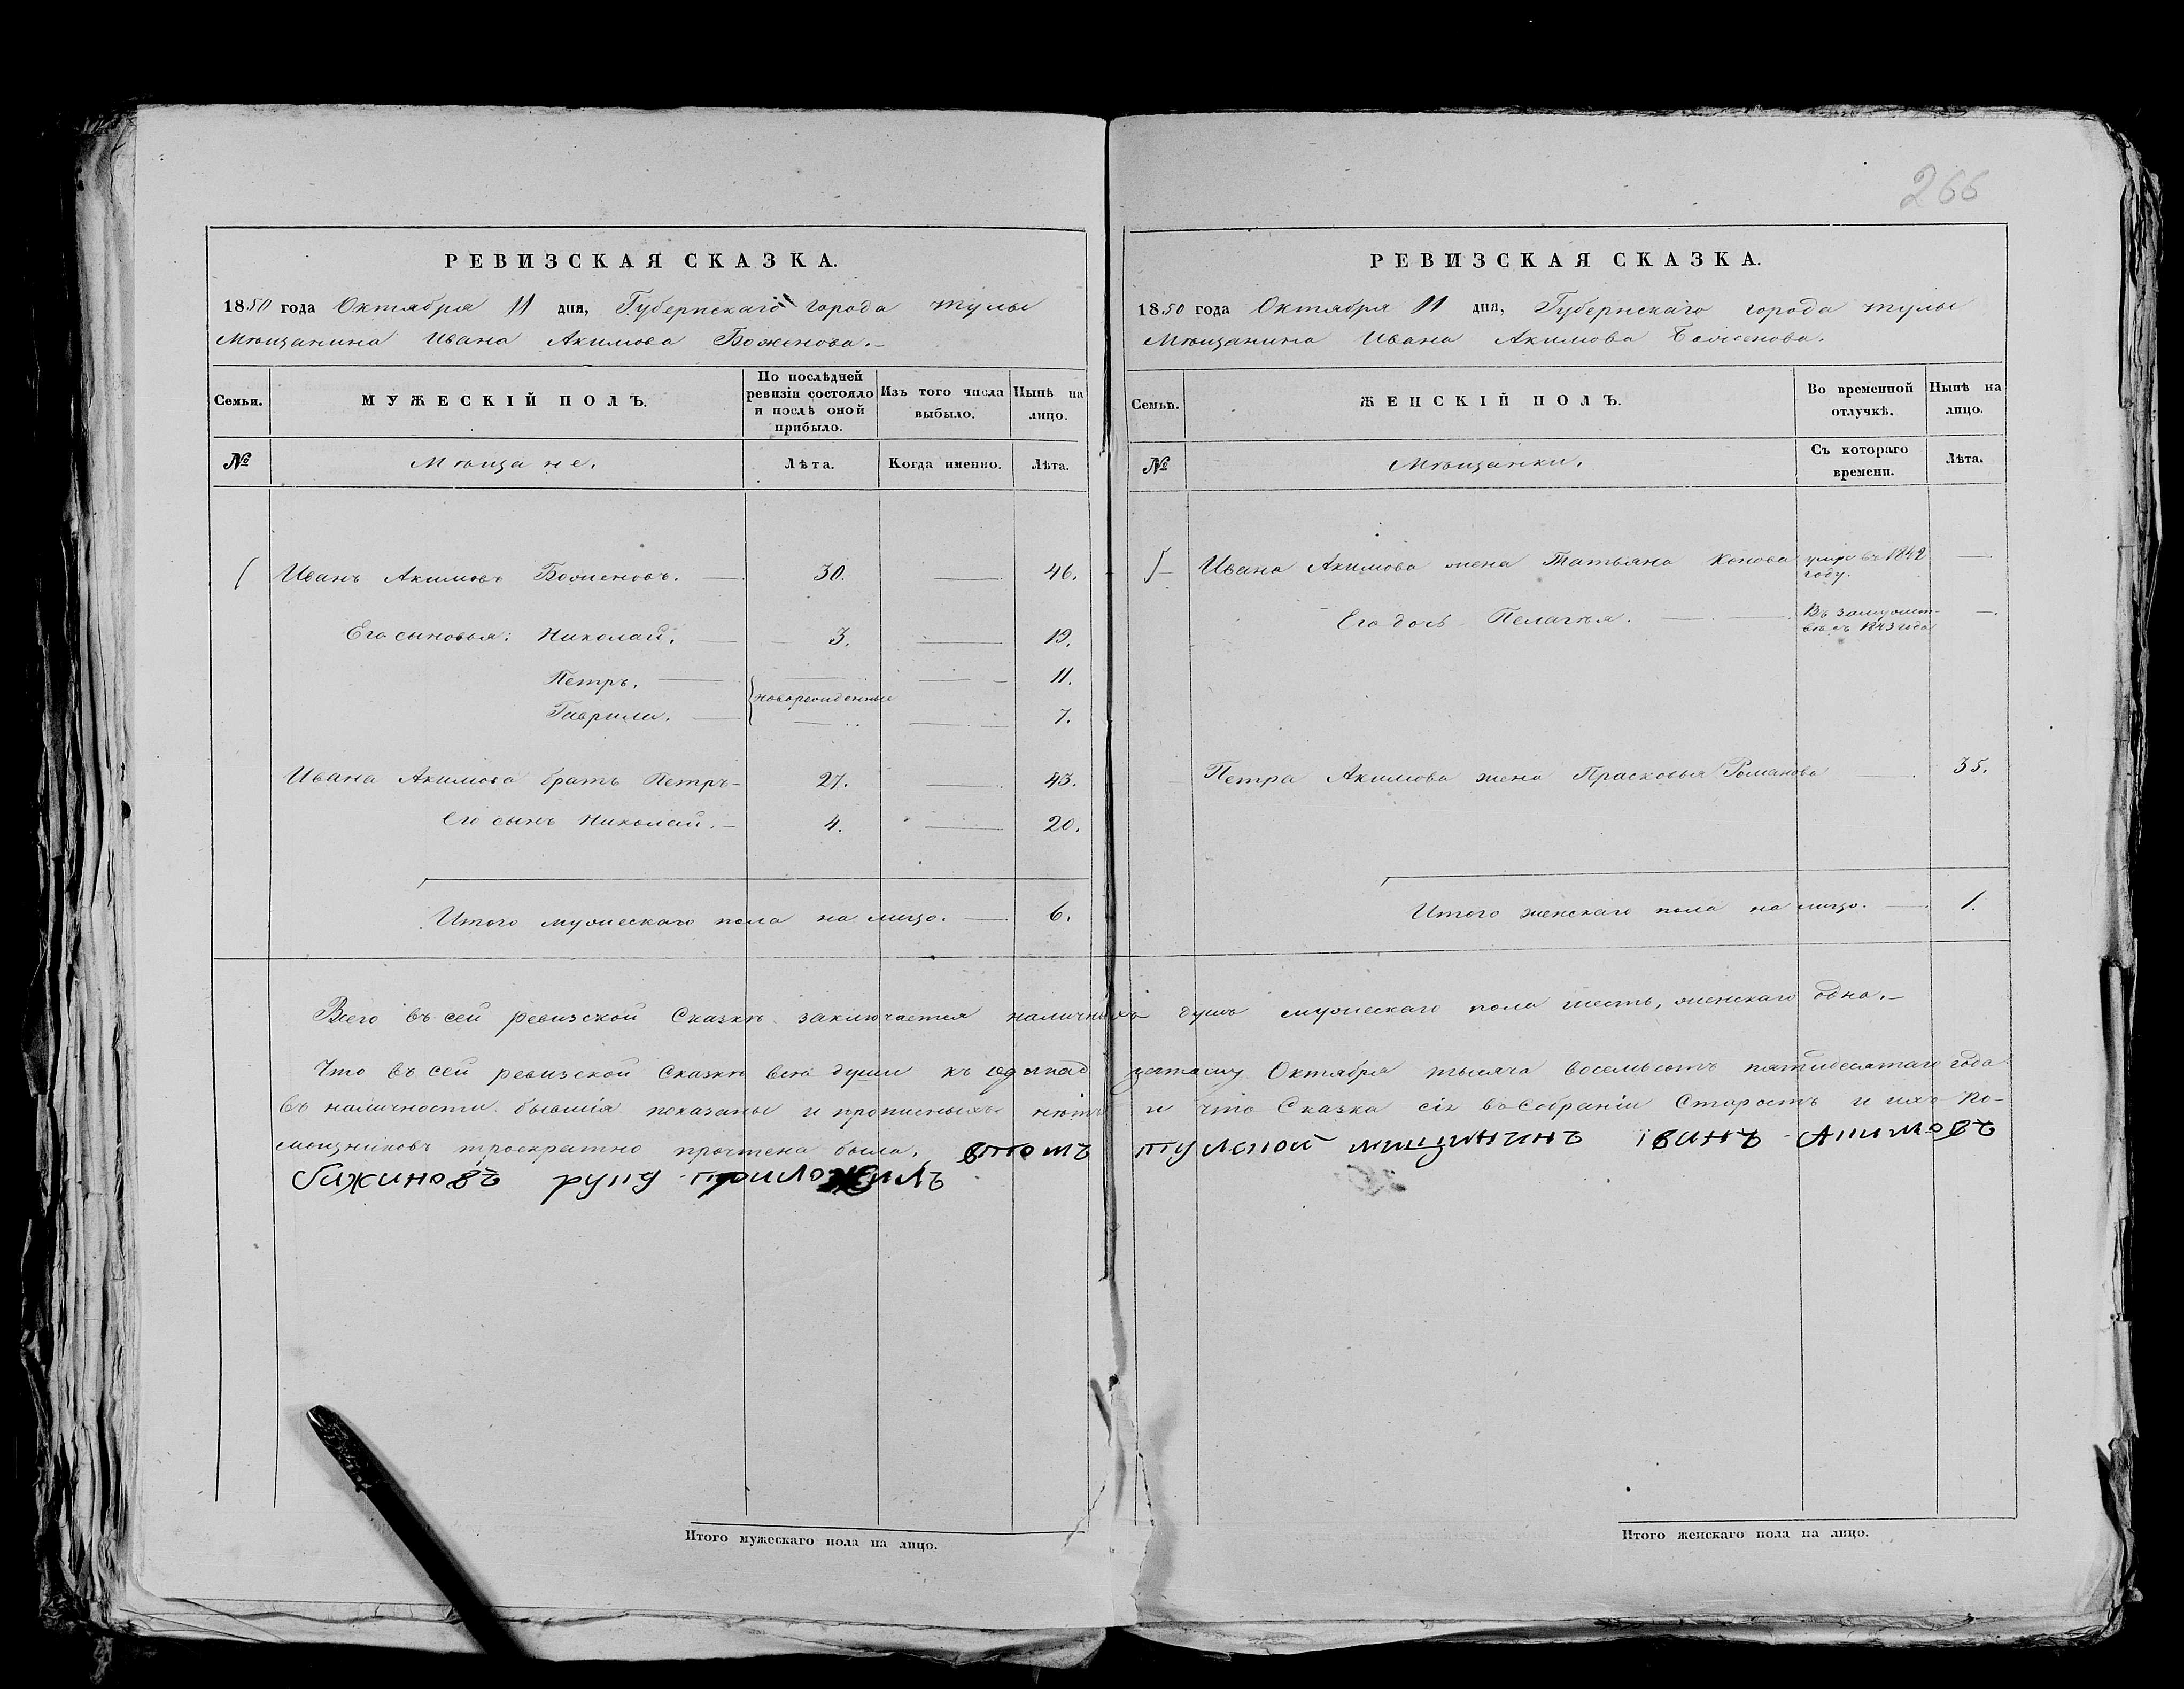 266
РЕВИЗСКАЯ СКАЗКА.
1850 года Октября 11 дня, Губернскаго города Тулы
Мѣщанина Ивана Акимова Боженова.
Семьи. МУЖЕСКІЙ ПОЛЪ. По послѣдней ревизіи состояло и послѣ оной прибыло. Изъ того числа выбыло. Нынѣ на лицо.
№ Мѣщане. Лѣта. Когда именно. Лѣта.
1 Иванъ Акимовъ Боженовъ. 30. 46.
Его сыновья: Николай. 3. 19.
Петръ. 11.
новорожденные
Гаврила. 7.
Ивана Акимова братъ Петръ 27. 43.
Его сынъ Николай. 4. 20.
Итого мужескаго пола на лицо. 6.
РЕВИЗСКАЯ СКАЗКА.
1850 года Октября 11 дня, Губернскаго города Тулы
Мѣщанина Ивана Акимова Боженова.
Семьи. ЖЕНСКІЙ ПОЛЪ. Во временной отлучкѣ. Нынѣ на лицо.
№ Мѣщанки. Съ котораго времени. Лѣта.
1 Ивана Акимова жена Татьяна въ 1842
году.
Его дочь Пелагѣя. Въ замужест-
вѣ съ 1843 года
Петра Акимова жена Прасковья Романова 35.
Итого женскаго пола на лицо. 1.
Всего въ сей ревизской Сказкѣ заключается наличныхъ душъ мужескаго пола шесть, женскаго одна.
Что въ сей ревизской Сказкѣ всѣ души къ одинад цатому Октября тысяча восемьсотъ пятидесятаго года
въ наличности бывшія показаны и прописныхъ нѣтъ и что Сказка сія въ Собраніи Старостъ и ихъ По-
мощниковъ троекратно прочтена была, втомъ тулской мищининъ івинъ Акимовъ
бажиновъ руку приложилъ
Итого мужескаго пола на лицо.
Итого женскаго пола на лицо.